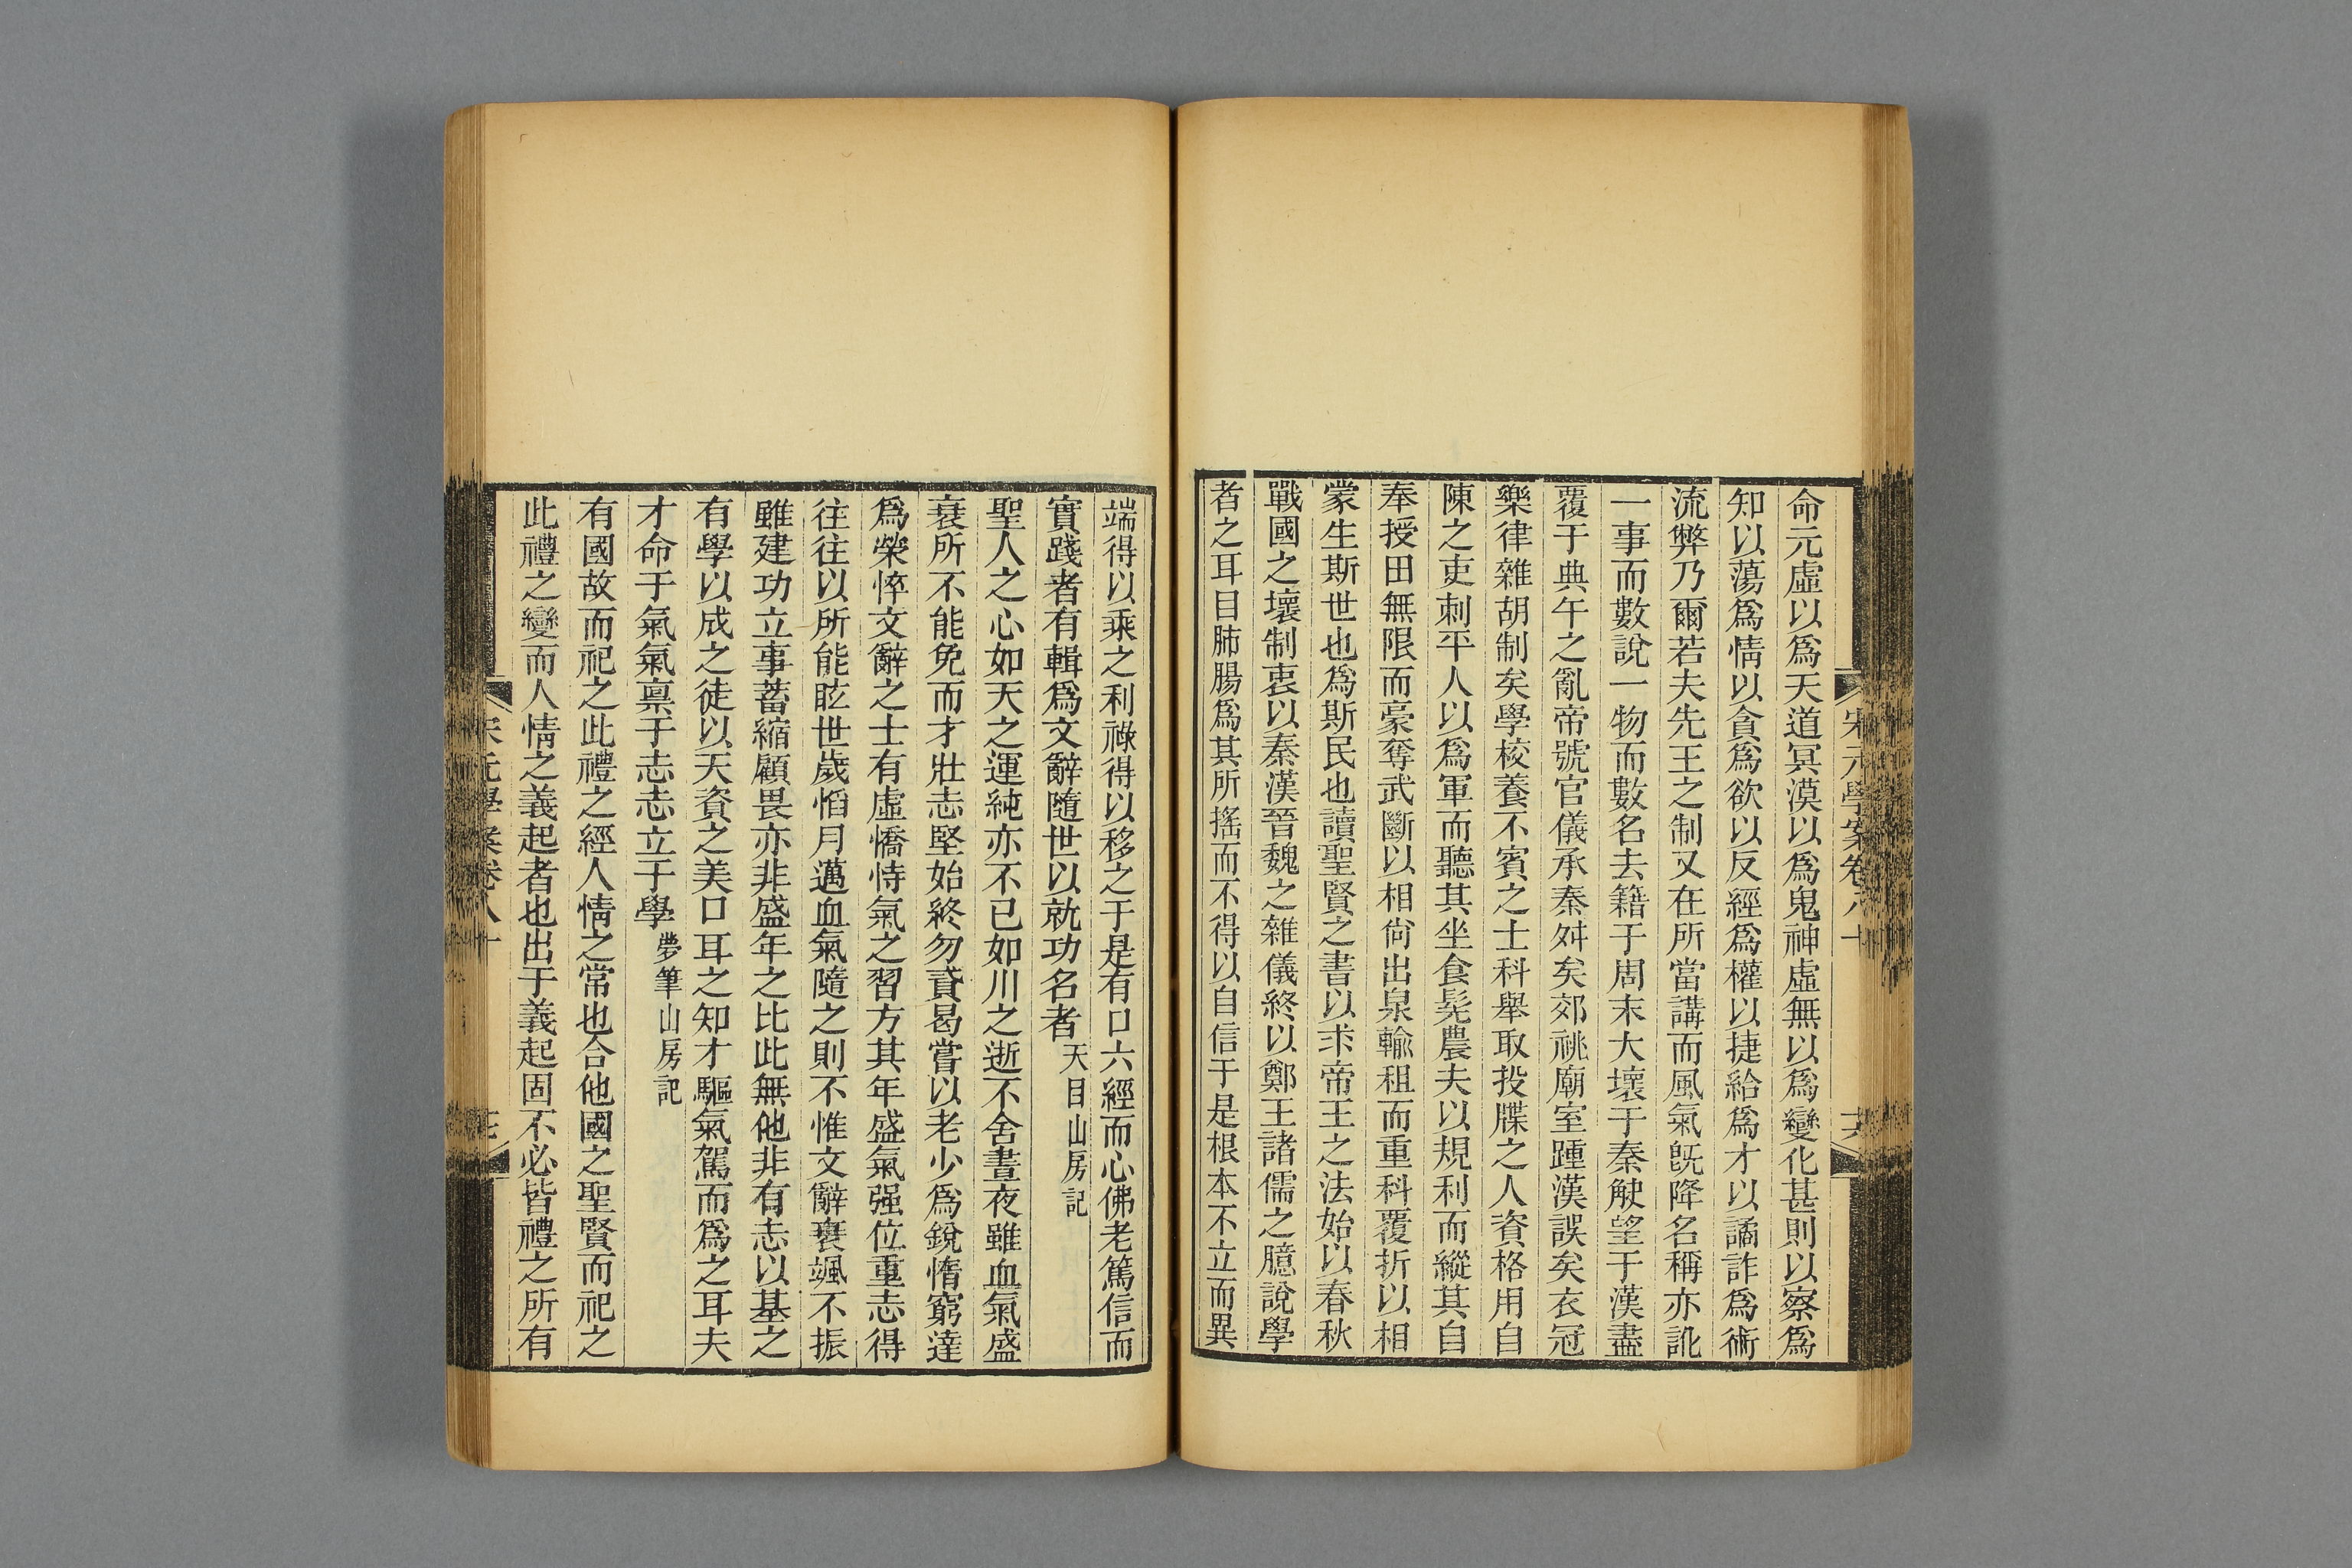 命元虛以爲天道冥漠以爲鬼神虛無以爲變化甚則以察爲
知以蕩爲情以貪爲欲以反經爲權以捷給爲才以譎詐爲術
流弊乃爾若夫先王之制又在所當講而風氣旣降名稱亦訛
一事而數說一物而數名去籍于周末大壞于秦觖望于漢盡
覆于典午之亂帝號官儀承秦舛矣郊祧廟室踵漢誤矣衣冠
樂律雜胡制矣學校養不賓之士科舉取投牒之人資格用自
陳之吏刺平人以爲軍而聽其坐食髡農夫以規利而縱其自
奉授田無限而豪奪武斷以相尙出泉輸租而重科覆折以相
蒙生斯世也爲斯民也讀聖賢之書以求帝王之法始以春秋
戰國之壞制衷以秦漢晉魏之雜儀終以鄭王諸儒之臆說學
者之耳目肺腸爲其所搖而不得以自信于是根本不立而異
端得以乘之利祿得以移之于是有口六經而心佛老篤信而
實踐者有輯爲文辭隨世以就功名者天目山房記
聖人之心如天之運純亦不已如川之逝不舍晝夜雖血氣盛
衰所不能免而才壯志堅始終勿貣曷嘗以老少爲銳惰窮達
爲榮悴文辭之士有虛憍恃氣之習方其年盛氣强位重志得
往往以所能眩世歲慆月邁血氣隨之則不惟文辭衰颯不振
雖建功立事蓄縮顧畏亦非盛年之比此無他非有志以基之
有學以成之徒以天資之美口耳之知才驅氣駕而爲之耳夫
才命于氣氣禀于志志立于學夢筆山房記
有國故而祀之此禮之經人情之常也合他國之聖賢而祀之
此禮之變而人情之義起者也出于義起固不必皆禮之所有
宋元學案卷八十